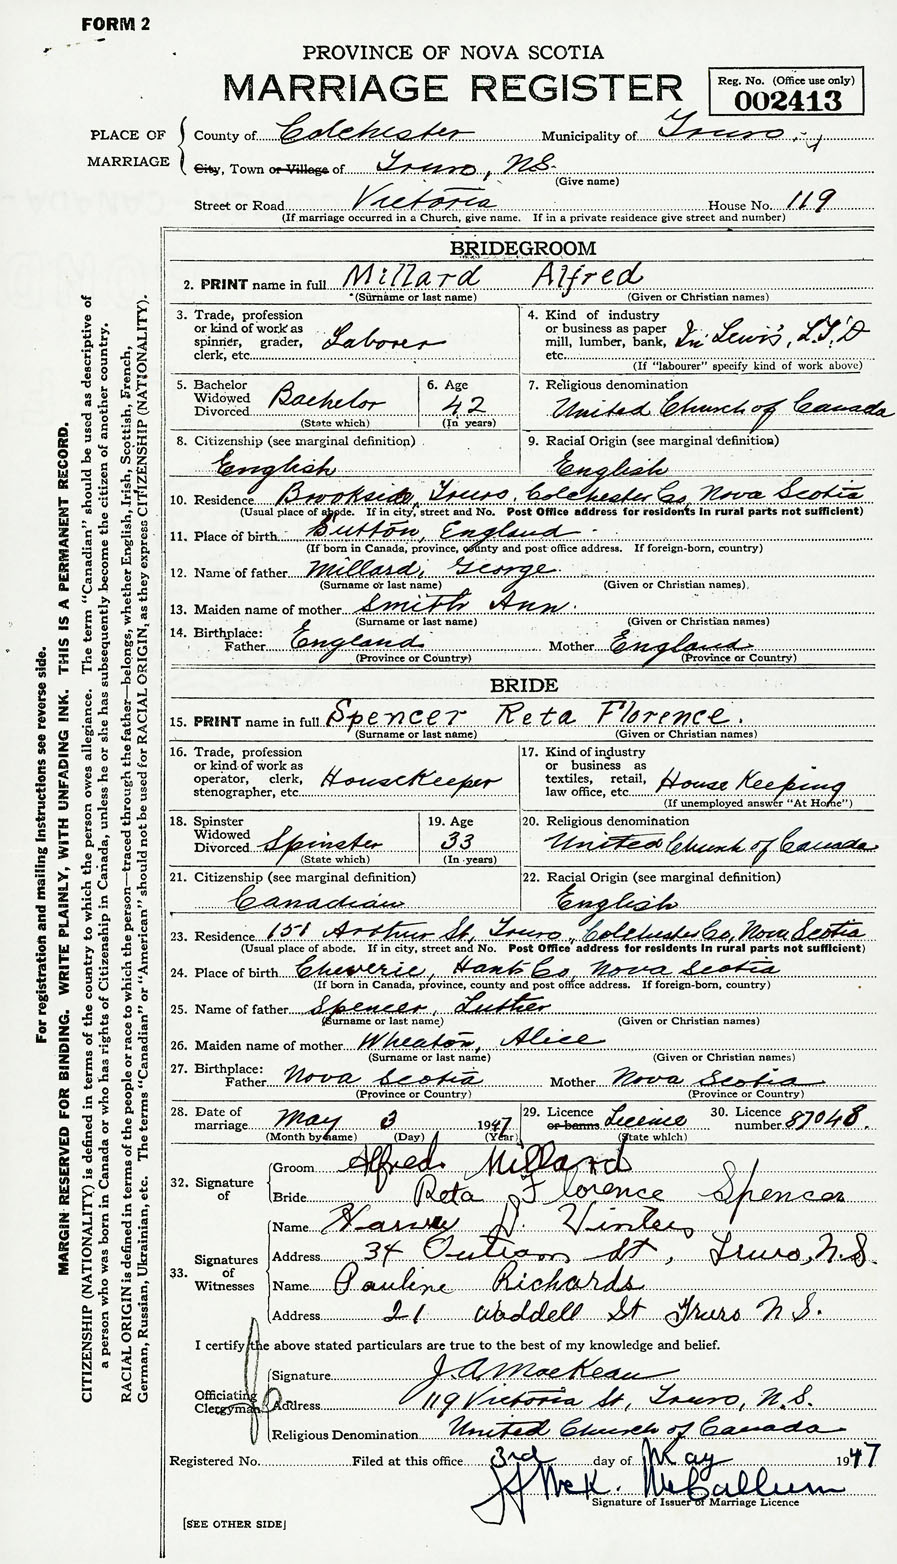 FORM 2
PROVINCE OF NOVA SCOTIA
MARRIAGE REGISTER
Reg. No. (Office use only)
002413
PLACE OF MARRIAGE
County of Colchester Municipality of Truro
City, Town or Village of Truro, N.S.
(Give name)
Street or Road Victoria House No. 119
(If marriage occurred in a Church, give name. If in a private residence give street and number)
BRIDEGROOM
2. PRINT name in full Millard Alfred
(Surname or last name) (Given or Christian names)
3. Trade, profession or kind of work as spinner, grader, clerk, etc. Laborer
4. Kind of industry or business as paper mill, lumber, bank, etc. In Lewis', LT'D
(If "labourer" specify kind of work above)
5. Bachelor Widowed Divorced Bachelor
(State which)
6. Age 42
(In years)
7. Religious denomination
United Church of Canada
8. Citizenship (see marginal definition)
English
9. Racial Origin (see marginal definition)
English
10. Residence Brookside, Truro, Colchester Co, Nova Scotia
(Usual place of abode. If in city, street and No. Post Office address for residents in rural parts not sufficient)
11. Place of birth Sutton, England
(If born in Canada, province, county and post office address. If foreign-born, country)
12. Name of father Millard, George
(Surname or last name) (Given or Christian names)
13. Maiden name of mother Smith Ann.
(Surname or last name) (Given or Christian names)
14. Birthplace: Father England Mother England
(Province or Country) (Province or Country)
BRIDE
15. PRINT name in full Spencer Reta Florence.
(Surname or last name) (Given or Christian names)
16. Trade, profession or kind of work as operator, clerk, stenographer, etc. HouseKeeper
17. Kind of industry or business as textiles, retail, law office, etc. House Keeping
(If unemployed answer "At Home")
18. Spinster Widowed Divorced Spinster
(State which)
19. Age 33
(In years)
20. Religious denomination
United Church of Canada
21. Citizenship (see marginal definition)
Canadian
22. Racial Origin (see marginal definition)
English
23. Residence 151 Arthur St, Truro, Colchester Co, Nova Scotia
(Usual place of abode. If in city, street and No. Post Office address for residents in rural parts not sufficient)
24. Place of birth Cheverie, Hants Co, Nova Scotia
(If born in Canada, province, county and post office address. If foreign-born, country)
25. Name of father Spencer, Luther
(Surname or last name) (Given or Christian names)
26. Maiden name of mother Wheaton, Alice
(Surname or last name) (Given or Christian names)
27. Birthplace: Father Nova Scotia Mother Nova Scotia
(Province or Country) (Province or Country)
28. Date of marriage May 3 1947
(Month by name) (Day) (Year)
29. Licence or banns Licence
(State which)
30. Licence number 87048.
32. Signature of
Groom Alfred Millard
Bride Reta Florence Spencer
33. Signatures of Witnesses
Name Harvey D.
Address 34 Outram St, Truro, N.S.
Name Pauline Richards
Address 21 Waddell St Truro N S.
I certify the above stated particulars are true to the best of my knowledge and belief.
Officiating Clergyman
Signature J. A. MacKean
Address 119 Victoria St, Truro, N.S.
Religious Denomination United Church of Canada
Registered No. Filed at this office 3rd day of May 1947
McK. McCallum
Signature of Issuer of Marriage Licence
[SEE OTHER SIDE]
For registration and mailing instructions see reverse side.
MARGIN RESERVED FOR BINDING. WRITE PLAINLY, WITH UNFADING INK. THIS IS A PERMANENT RECORD.
CITIZENSHIP (NATIONALITY) is defined in terms of the country to which the person owes allegiance. The term "Canadian" should be used as descriptive of
a person who was born in Canada or who has rights of Citizenship in Canada, unless he or she has subsequently become the citizen of another country.
RACIAL ORIGIN is defined in terms of the people or race to which the person—traced through the father—belongs, whether English, Irish, Scottish, French,
German, Russian, Ukrainian, etc. The terms "Canadian" or "American" should not be used for RACIAL ORIGIN, as they express CITIZENSHIP (NATIONALITY).